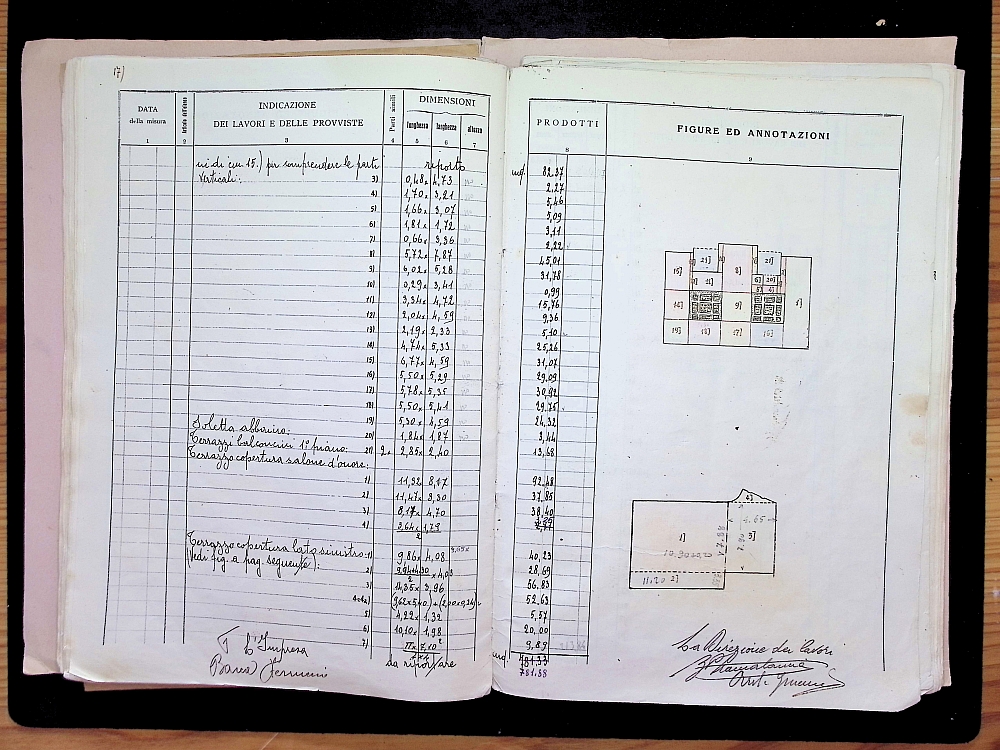 17)
DATA
della misura
INDICAZIONE
DEI LAVORI E DELLE PROVVISTE
Parti simili
DIMENSIONI
lunghezza larghezza altezza
PRODOTTI
FIGURE ED ANNOTAZIONI
1 2 3 4 5 6 7 8 9
ni di cm 15.) per comprendere le parti riporto mq. 82.37
verticali: 3) 0,48 x 4,73 2,27
4) 1,70 x 3,21 5,46
5) 1,66 x 3,07 5,09
6) 1,81 x 1,72 3,11
7) 0,66 x 3,36 2,22
8) 5,72 x 7,87 45,01
9) 6,02 x 5,28 31,78
10) 0,29 x 3,41 0,99
11) 3,34 x 4,72 15,76
12) 2,04 x 4,59 9,36
13) 2,19 x 2,33 5,10
14) 4,74 x 5,33 25,26
15) 6,77 x 4,59 31,07
16) 5,50 x 5,29 29,09
17) 5,78 x 5,35 30,92
18) 5,50 x 5,41 29,75
19) 5,30 x 4,59 24,32
Soletta abbaino: 20) 1,84 x 1,87 3,44
Terrazzi balconcini 1° piano: 21) 2 x 2,85 x 2,40 13,68
Terrazzo copertura salone d'onore:
1) 11,32 x 8,17 92,48
2) 11,47 x 3,30 37,85
3) 8,17 x 4,70 38,40
4) 3,64 x 1,79
2
Terrazzo copertura lato sinistro: 1) 9,86 x 4,08 40,23
(Vedi fig. a pag. seguente): 2) x 4,08 28,69
2
3) 14,35 x 3,96 56,83
(9,62 x 5,40) + (2,00 x 0,34) = 52,63
5) 4,22 x 1,32 5,57
6) 10,10 x 1,98 20,00
7) 9,87
da riportare md. 781,33
781.38
F. L'Impresa
La Direzione dei lavori
15] 21] 8] 21] 1]
11] 6] 20]
14] 9]
19] 18] 17] 16]
4]
1] 3]
4.65
11,20 2]